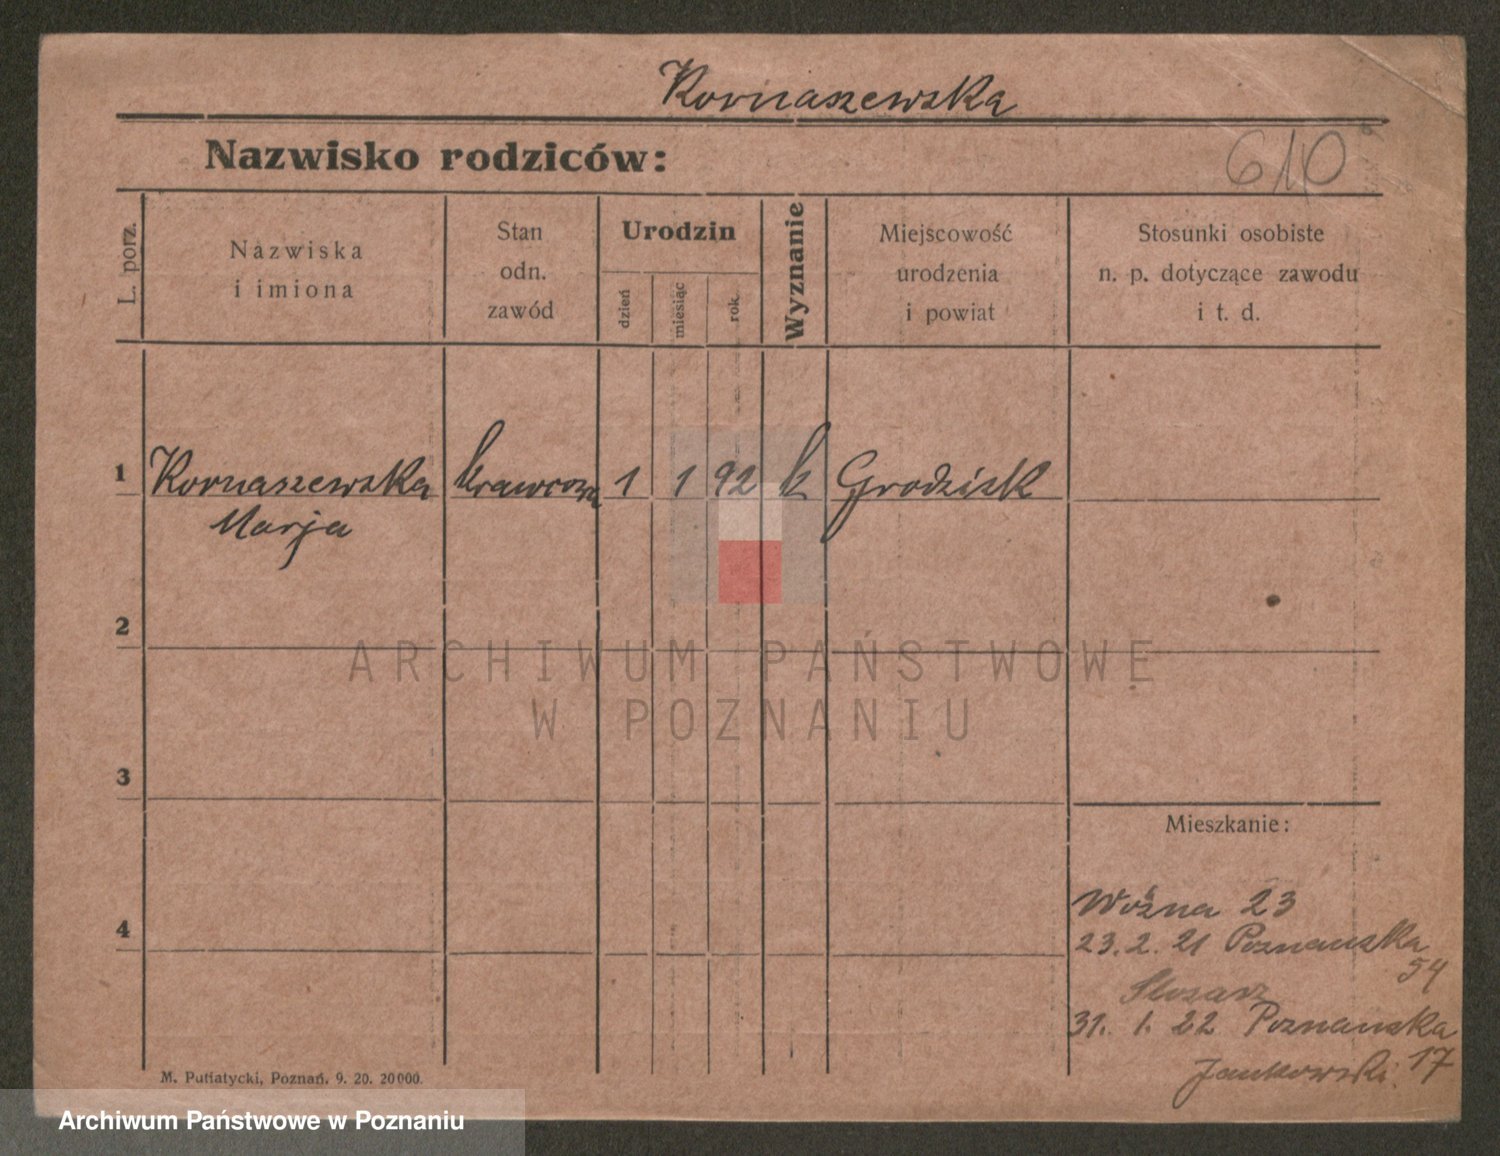 Kornaszewska
Nazwisko rodziców:
610
L. porz.
Nazwiska
i imiona
Stan
odn.
zawód
Urodzin
dzień
miesiąc
rok.
Wyznanie
Miejscowość
urodzenia
i powiat
Stosunki osobiste
n. p. dotyczące zawodu
i t. d.
1 Kornaszewska krawcowa 1 1 92 k Grodzisk
Marja
2
ARCHIWUM PAŃSTWOWE
W POZNANIU
3
Mieszkanie:
4
Woźna 23
23. 2. 21 Poznańska
54
Slosarz
31. 1. 22 Poznańska
Jankowski 17
M. Putiatycki, Poznań, 9. 20. 20000.
Archiwum Państwowe w Poznaniu